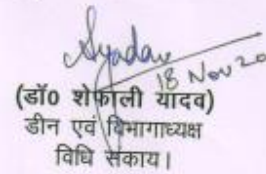 Syadav
18 Nov 20
(डॉ0 शेफाली यादव)
डीन एवं विभागाध्यक्ष
विधि संकाय।